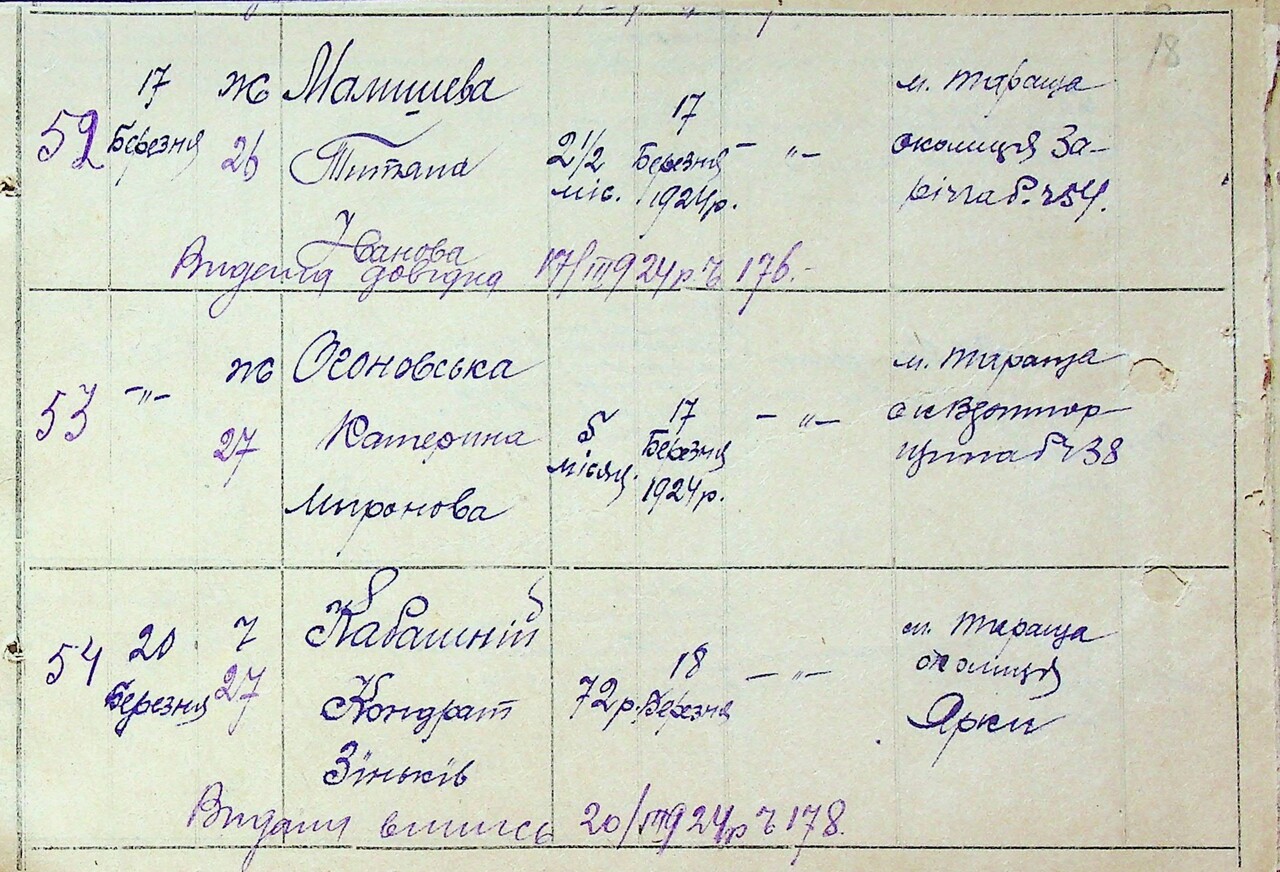 18
52
17
Березня
ж
26
Малишева
Титяна
Іванова
2 1/2
міс.
17
Березня
1924р.
— „ —
м. Тараща
околиця За-
річча б. ч 54.
Видана довідка 17/III 924 р ч 176.-
53
— „ —
ж
27
Огоновська
Катерина
Миронова
5
місяц.
17
Березня
1924 р.
— „ —
м. Тараща
б ч 38
54
20
Березня
ч
27
Кабашній
Кондрат
Зіньків
72р.
18
Березня
— „ —
м. Тараща
околиця
Ярки
Видана випись 20/III 924 р ч 178.